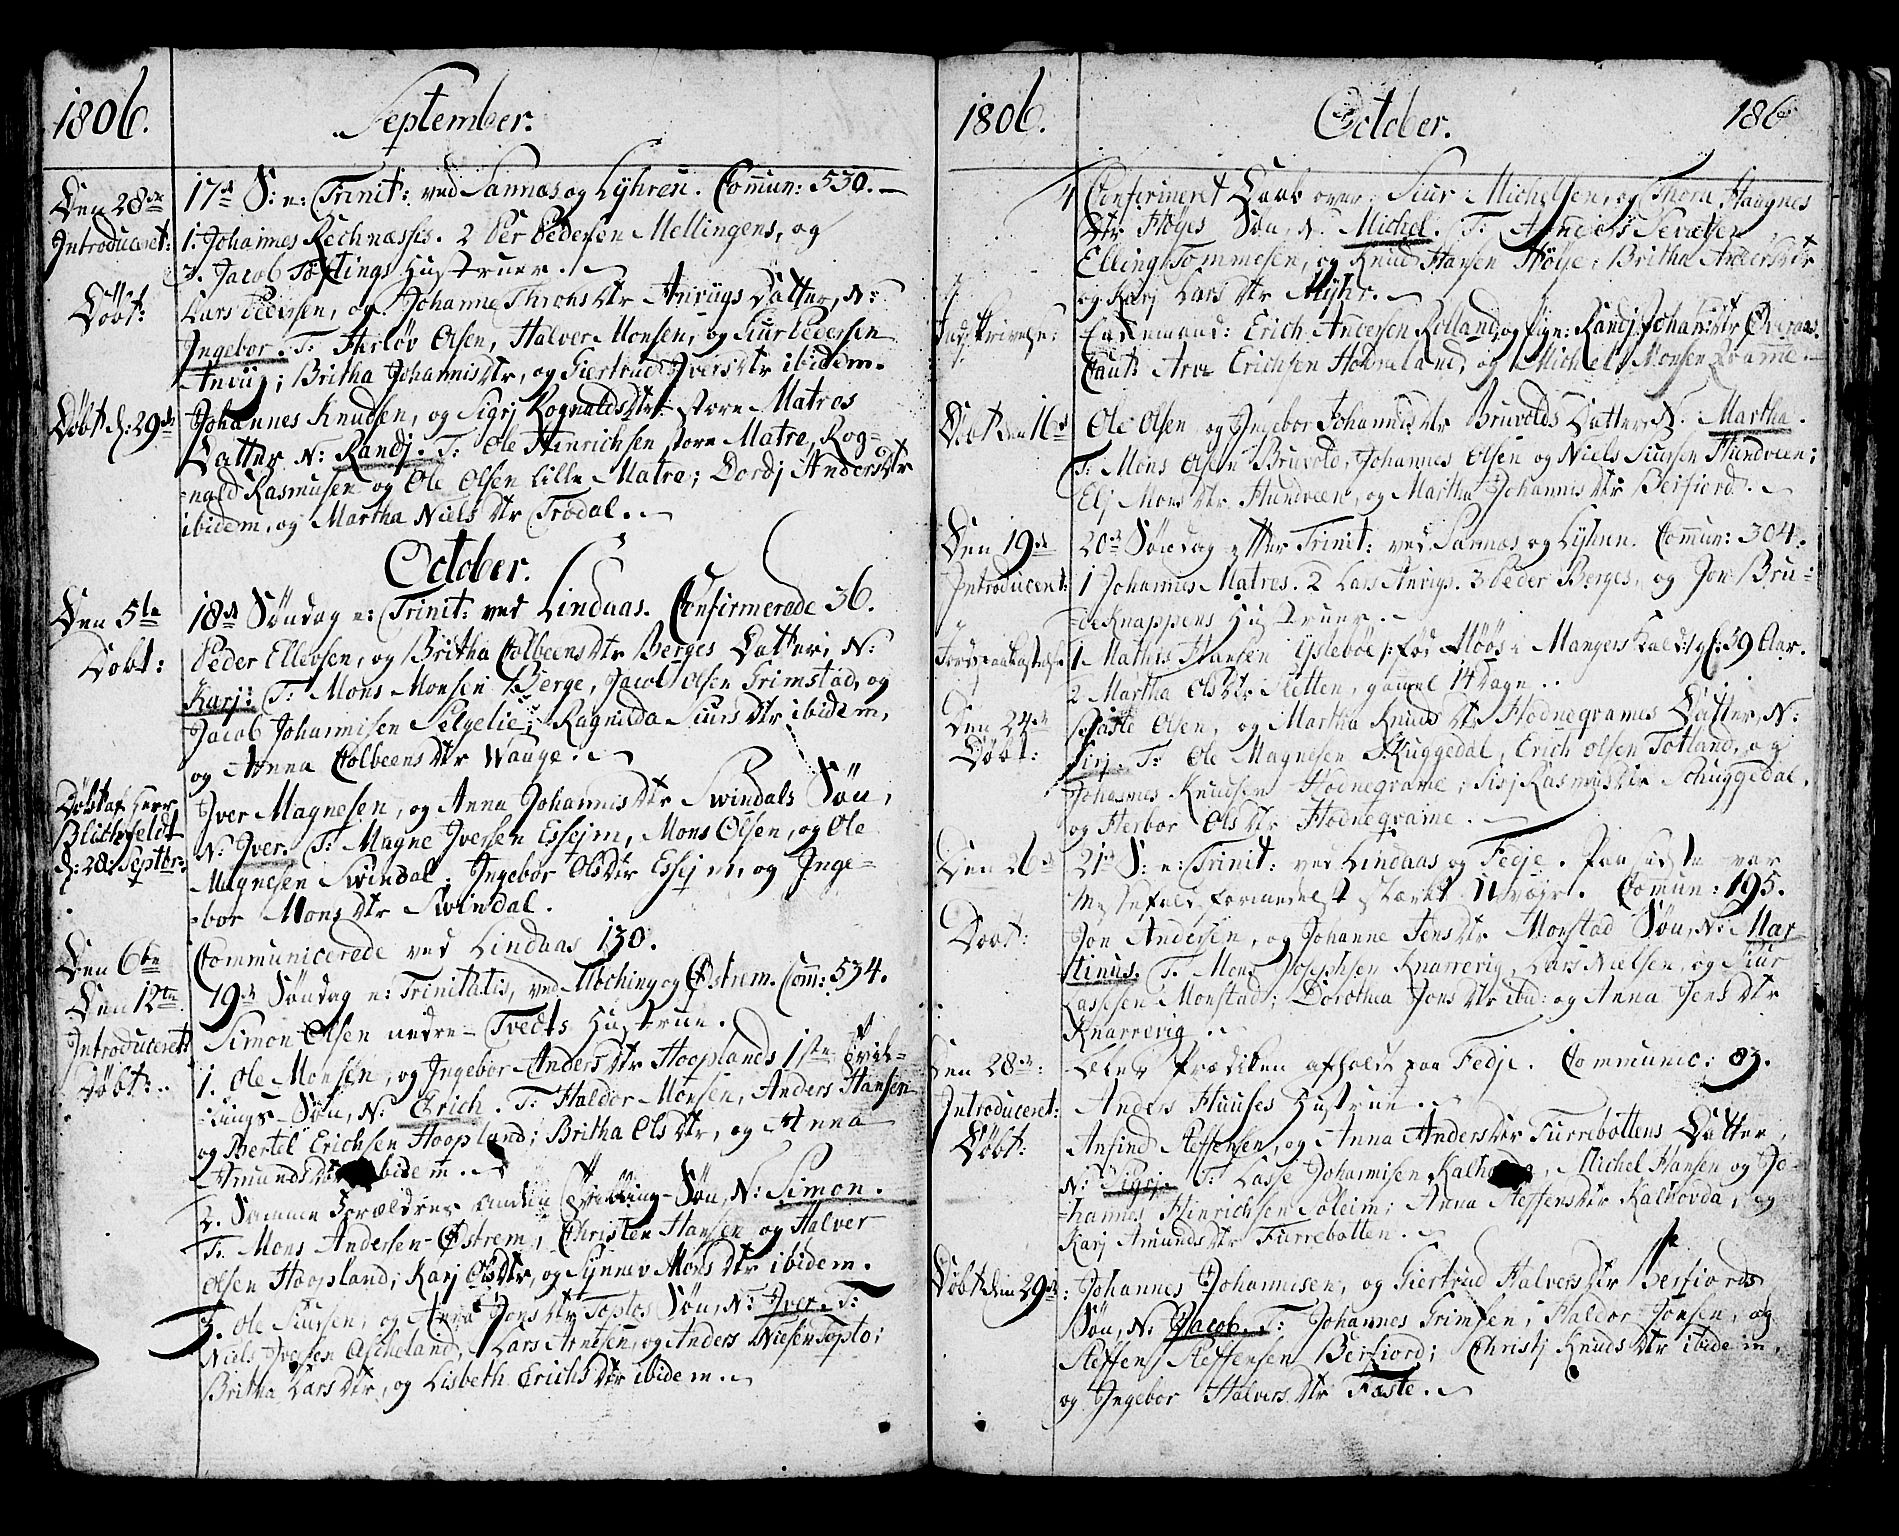 1806. September.
Den 28de 17de S: e: Trinit: ved Sannæs og Lyhren. Commun: 530.
Introduceret: 1. Johannes Rechnæsses. 2 Per Pedersen Mellingens, og
3. Jacob Toftings Hustruer.
Döbt: Lars Pedersen, og Johanne Throns Dtr Anviigs Datter, N:
Ingebor. T: Herlöv Olsen, Halver Monsen, og Siur Pedersen
Anviig; Britha Johannis Dtr, og Giertrud Ivers Dtr ibidem.
Döbt d: 29de Johannes Knudsen, og Sigrj Rognalds Dtr store Matres
Datter N: Randj. T: Ole Hinrichsen store Matre, Rog-
nald Rasmusen og Ole Olsen Lille Matre; Dordj Anders Dtr
ibidem, og Martha Niels Dtr Trodal.
October.
Den 5te 18de Söndag e: Trinit: ved Lindaas. Confirmerede 36.
Döbt: Peder Ellevsen, og Britha Colbeens Dtr Berges Datter, N:
Karj: T: Mons Monsen Berge, Jacob Olsen Grimstad, og
Jacob Johannisen Selgelie; Ragnilda Siurs Dtr ibidem,
og Anna Colbeens Dtr Wauge.
Döbt af Herr Iver Magnesen, og Anna Johannis Dtr Swindals Sön,
Blichfeldt N: Iver. T: Magne Iversen Essejm, Mons Olsen, og Ole
d: 28: Septbr: Magnesen Swindal; Ingebor Ols Dtr Essejm, og Inge-
bor Mons Dtr Swindal.
Den 6te Communicerede ved Lindaas 130.
Den 12te 19de Söndag e: Trinitatis, ved Mochting og Östrem. Com: 534.
Introduceret: Simon Olsen nedre Tvedts Hustrue.
Döbt: 1. Ole Monsen, og Ingebor Anders Dtr Hooplands 1ste Tvil-
lings-Sön, N: Erich. T: Haldor Monsen, Anders Hansen
og Bertel Erichsen Hoopland; Britha Ols Dtr, og Anna
Amunds Dtr ibidem.
2. Samme Forældres anden Tvilling-Sön, N: Simon.
T: Mons Andersen Östrem, Christen Hansen og Halver
Olsen Hoopland; Karj Ols Dtr, og Synnev Mons Dtr ibidem.
3. Ole Siursen, og Anna Jons Dtr Toptos Sön, N: Iver. T:
Niels Iversen Ascheland, Lars Arnesen, og Anders Nielsen Topto;
Britha Lars Dtr, og Lisbeth Erichs Dtr ibidem.
1806. October. 186
4 Conferineret Daab over Siur Michelsen, og Thora Haagnes
Dtr Höljes Sön, N. Michel. T: Anders
Elling Tommesen, og Knud Hansen Hölje; Britha Anders Dtr
og Karj Lars Dtr Myhr.
Indskrivelse: Enkemand: Erich Andersen Rolland, og Pige: Randj Johannis Dtr Overaas.
Caut: Arne Erichsen Hodneland, og Michel Monsen Raamme.
Döbt den 16de Ole Olsen, og Ingebor Johannis Dtr Bruvolds Datter, N. Martha.
T: Mons Olsen Bruvold, Johannes Olsen og Niels Siursen Hundveen;
Elj Mons Dtr Hundveen, og Martha Johannis Dtr Berfiord.
Den 19de 20de Söndag efter Trinit: ved Sannæs og Lyhren. Commun: 304.
Introduceret: 1 Johannes Matres. 2 Lars Anvigs. 3 Peder Berges, og Jon Bru-
deknappens Hustruer.
Jordspaakastelse 1 Mathis Hansen Yslebøe f: fød Möös i Mangers Kald: gl: 39 Aar.
2 Martha Ols Dtr Sletten, gammel 14 Dage.
Den 24de Olsen, og Martha Knuds Dtr Hodnegrames Datter, N:
Döbt: Sirj. T: Ole Magnesen Skuggedal, Erich Olsen Totland, og
Johannes Knudsen Hodnegrame; Sirj Rasmus Dtr Schuggedal,
og Herbor Ols Dtr Hodnegrame.
Den 26de 21de S: e: Trinit: ved Lindaas og Fedje. Paa sidste var
Messefald formedelst stærkt Uvejr. Commun: 195.
Döbt: Jon Andersen, og Johanne Jens Dtr Monstad Sön, N: Mar-
tinus. T: Mons Josephsen Knarrevig, Lars Nielsen, og Siur
Lassesen Monstad; Dorothea Jons Dtr ibid: og Anna Jens Dtr
Knarrevig.
Den 28de: Blev Prædiken afholdt paa Fedje. Communic: 83.
Introduceret: Anders Huuses Hustrue.
Döbt: Anfind Steffensen, og Anna Anders Dtr Furrebottens Datter,
N: Sigrj. T: Lasse Johannisen Kalhovda, Michel Hansen og Jo-
hannes Hinrichsen Soleim; Anna Steffens Dtr Kalhovda, og
Karj Amunds Dtr Furrebotten.
Döbt den 29de: Johannes Johannisen, og Giertrud Halvers Dtr Berfiords
Sön, N. Jacob. T: Johannes Grimsen, Haldor Jonsen, og
Steffen Steffensen Berfiord; Christj Knuds Dtr ibidem,
og Ingebor Halvers Dtr Fæste.